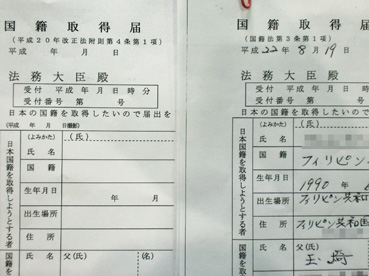 国籍取得届
(平成20年改正法附則第4条第1項)
平成　年　月　日
法務大臣殿
受付　平成　年　月　日　時　分
受付番号　第　　号
日本の国籍を取得したいので届出を
(平成　年　月　日撮影)
日本国籍を取得しようとする者
(よみかた)
(氏)
氏名
国籍
生年月日
年　月
出生場所
住所
国籍を
氏名
父(氏)
(名)
国籍取得届
(国籍法第3条第1項)
平成22年8月19日
法務大臣殿
受付　平成　年　月　日
受付番号　第
日本の国籍を取得したいので
日本国籍を取得しようとする者
(よみかた)
(氏)
氏名
国籍
フィリピン
生年月日
1990年
出生場所
フィリピン共和国
住所
フィリピン共和国
国籍を
氏名
父(氏)